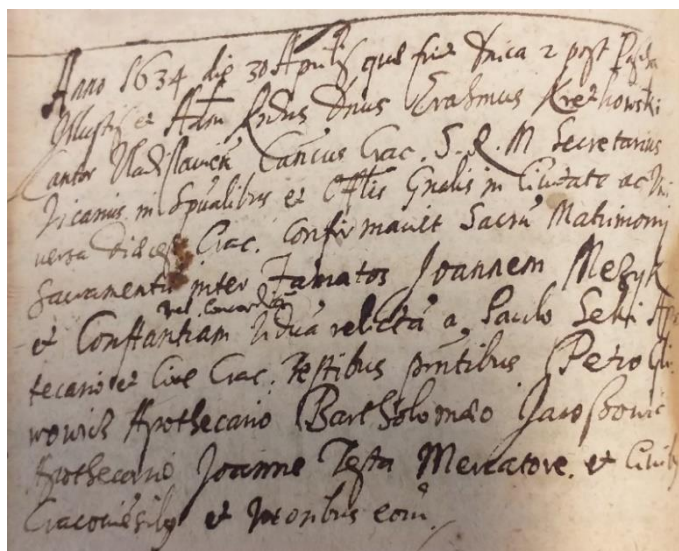 Anno 1634 die 30 Aprilis que fuit Dnica 2 post Pascha
Illustris et Adm Rndus Dnus Erasmus Kretkowski
Cantor Vladislavien Cancus Crac. S. R. M Secretarius
Vicarius in Spualibus et Offlis Gnalis in Civitate ac Vni
versa Diaecesi Crac. Confirmavit Sacrū Matrimony
Sacramentū inter Famatos Joannem Mężyk
vel Concordiam
et Constantiam Viduā relictā a Paulo Seki Apo
tecario et Cive Crac. Testibus pntibus Petro
wowicz Apothecario Bartholomaeo Jacobowic
Apothecario Joanne Testa Mercatore. et Civibꝰ
Cracovieსibꝰ et uxoribus eorū.